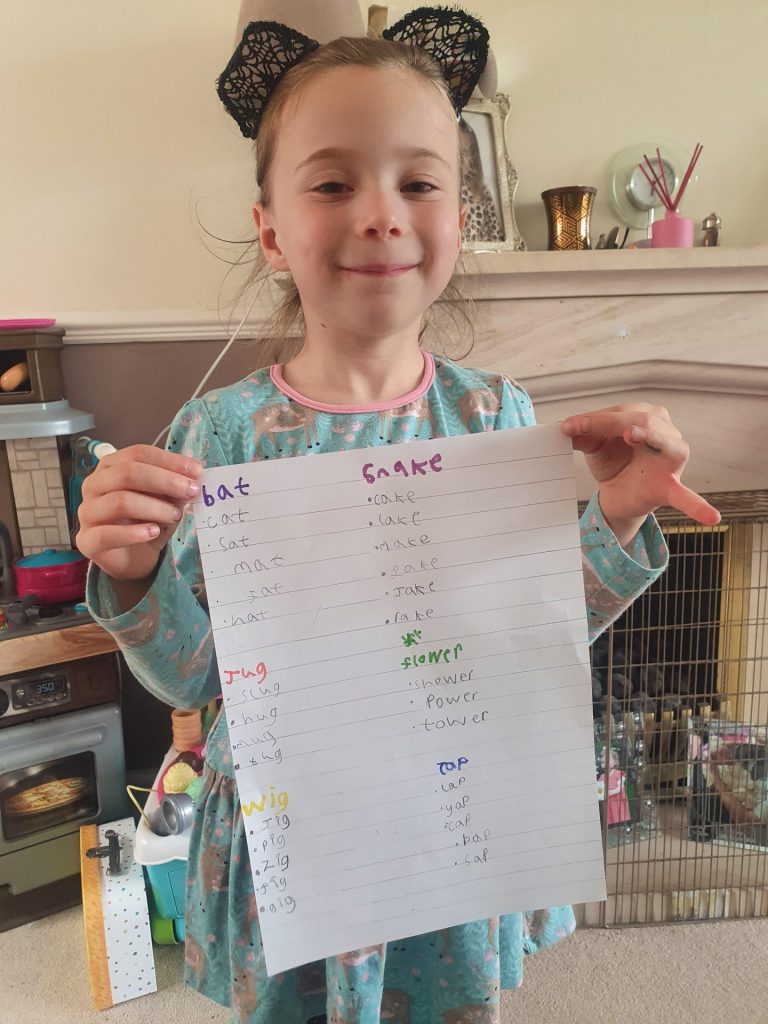 bat
• cat
• sat
• mat
• fat
• hat
Jug
• slug
• hug
• mug
• tug
Wig
• Jig
• pig
• zig
• fig
• gig
Snake
• cake
• lake
• Make
• fake
• Jake
• rake
flower
• shower
• Power
• tower
tap
• lap
• yap
• cap
• bap
• sap
350